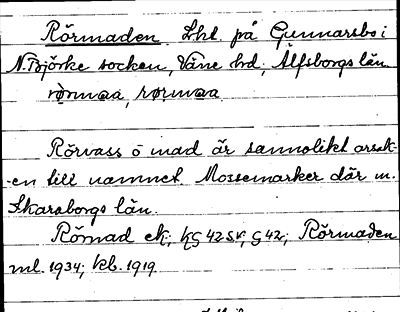 Rörmaden. Lht. på Gunnarsbo i
N. Björke socken, Väne hd, Älfsborgs län
rørmaa, rørmaa
Rörvass o mad är sannolikt orsak-
-en till namnet. Mossemarker där m.
Skaraborgs län.
Römad ek; kς 42 sv, ς 42; Rörmaden
ml. 1934; kb. 1919